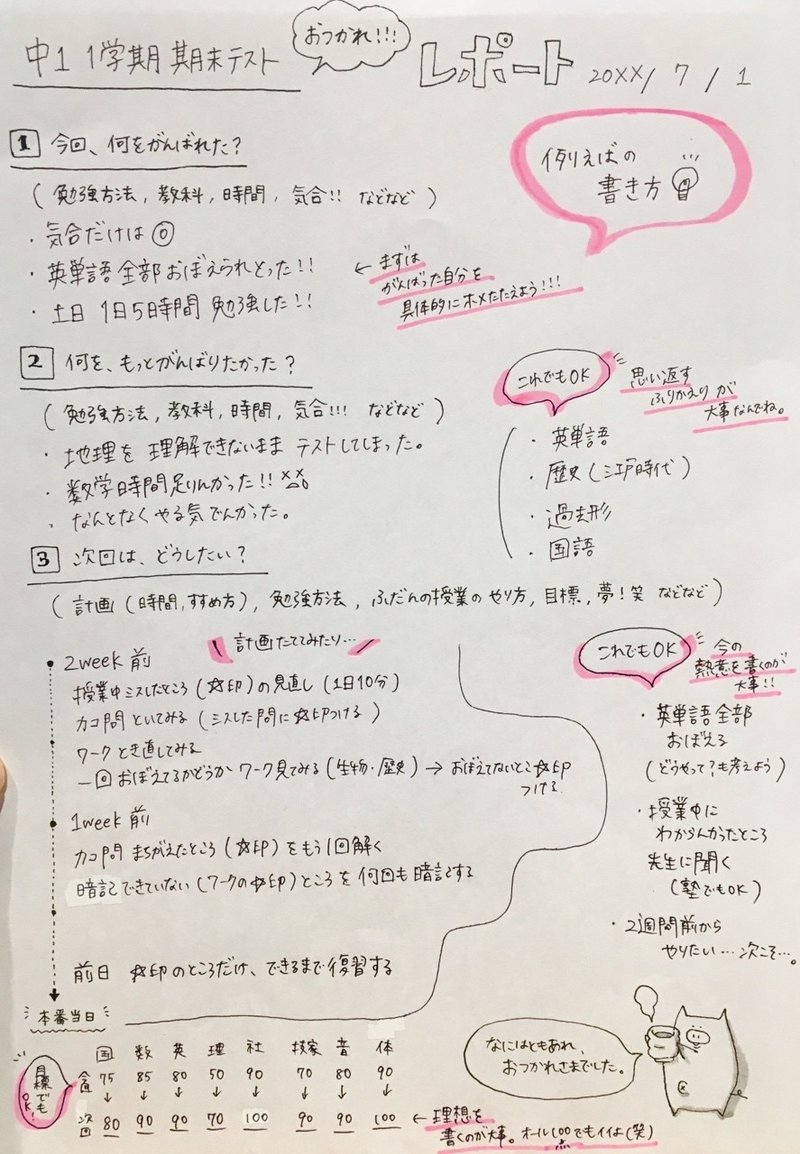 中1 1学期 期末テスト
おつかれ!!!
レポート
20XX/7/1
1 今回、何をがんばれた?
(勉強方法,教科,時間,気合!! などなど)
・気合だけは◎
・英単語全部おぼえられとった!!
・土日 1日5時間 勉強した!!
例えばの
書き方
← まずは
がんばった自分を
具体的にホメたたえよう!!!
2 何を、もっとがんばりたかった?
(勉強方法,教科,時間,気合!!! などなど)
・地理を 理解できないまま テストしてしまった。
・数学時間足りんかった!!
、なんとなくやる気でんかった。
これでもOK
思い返す
ふりかえり が
大事なんでね。
・英単語
・歴史(江戸時代)
・過去形
・国語
3 次回は、どうしたい?
(計画(時間,すすめ方),勉強方法,ふだんの授業のやり方,目標,夢!笑 などなど)
計画たててみたり…
2week 前
授業中ミスしたところ(☆印)の見直し(1日10分)
カコ問 といてみる(ミスした問に☆印つける)
ワークとき直してみる
一回おぼえてるかどうか ワーク見てみる(生物・歴史)→ おぼえてないとこ☆印
つける.
1week 前
カコ問 まちがえたところ(☆印)をもう1回解く
暗記できていない(ワークの☆印)ところを何回も暗記する
前日 ☆印のところだけ、できるまで復習する
本番当日
これでもOK
今の
熱意を書くのが
大事!!
・英単語全部
おぼえる
(どうやって?も考えよう)
・授業中に
わからんかったところ
先生に聞く
(塾でもOK)
・2週間前から
やりたい…次こそ…。
なにはともあれ、
おつかれさまでした。
目標でもOK!
国 数 英 理 社 技家 音 体
今回 75 85 80 50 90 70 80 90
↓ ↓ ↓ ↓ ↓ ↓ ↓ ↓
次回 80 90 90 70 100 90 90 100
← 理想を
書くのが大事。オール100点でもイイよ(笑)